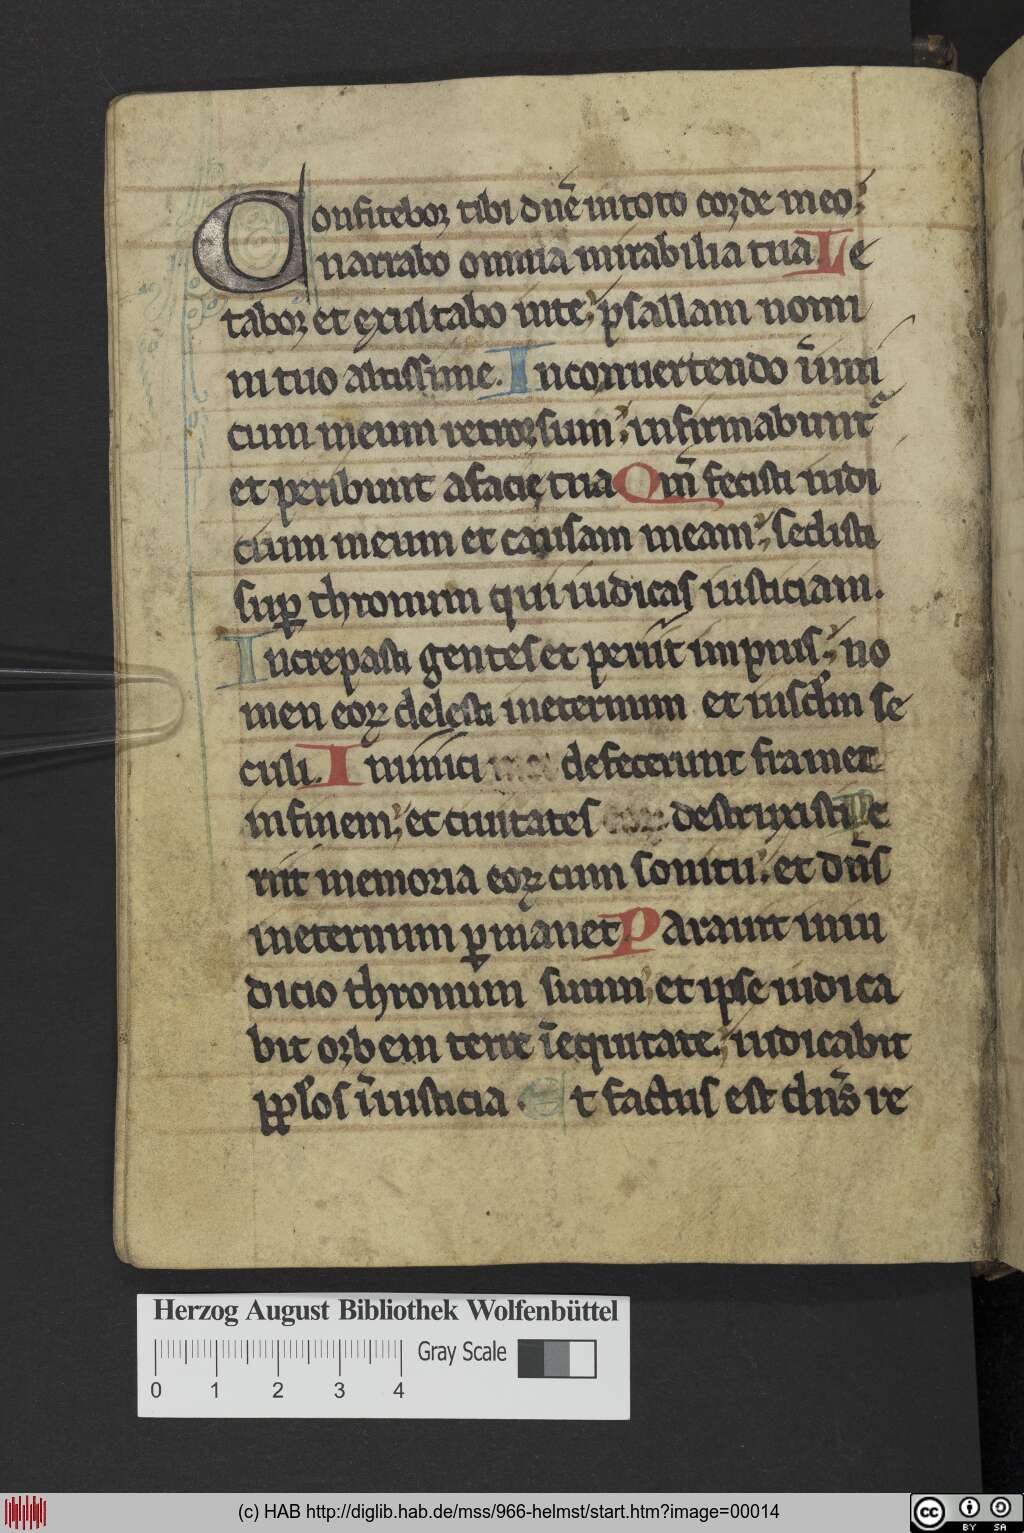 Confitebor tibi dn̄e in toto corde meo;
narrabo omnia mirabilia tua. Le
tabor et exultabo in te; psallam nomi
ni tuo altissime. In conuertendo inimi
cum meum retrorsum; infirmabunt᷑
et peribunt a facie tua Qm̄ fecisti iudi
cium meum et causam meam; sedisti
suꝑ thronum qui iudicas iusticiam.
Increpasti gentes et periit impius; no
men eoꝝ delesti ineternum et
culi. Inimici defecerunt framee
in finem; et ciuitates destruxisti Pe
riit memoria eoꝝ cum sonitu; et dn̄s
ineternum ꝑmanet. Parauit iniu
dicio thronum suum; et ipse iudica
bit orbem terre ī equitate; iudicabit
pplos ī iusticia. Et factus est dn̄s re
Herzog August Bibliothek Wolfenbüttel
Gray Scale
0 1 2 3 4
(c) HAB http://diglib.hab.de/mss/966-helmst/start.htm?image=00014
cc BY SA